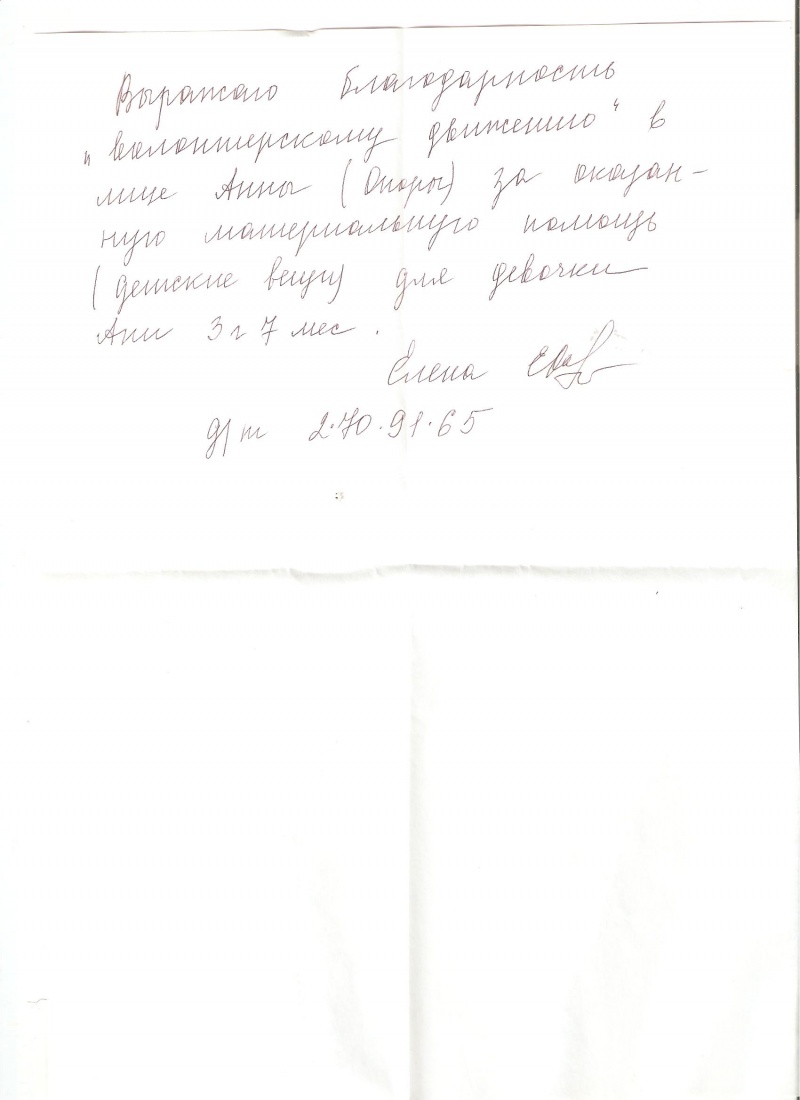 Выражаю благодарность
"волонтерскому движению" в
лице Анны (Опоры) за оказан-
ную материальную помощь
(детские вещи) для девочки
Ани 3 г 7 мес.
Елена
д/т 2.70.91.65